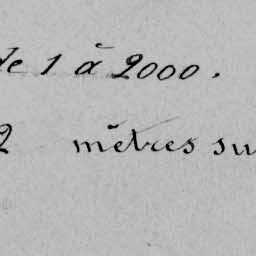 de 1 à 2000.
2 mètres su